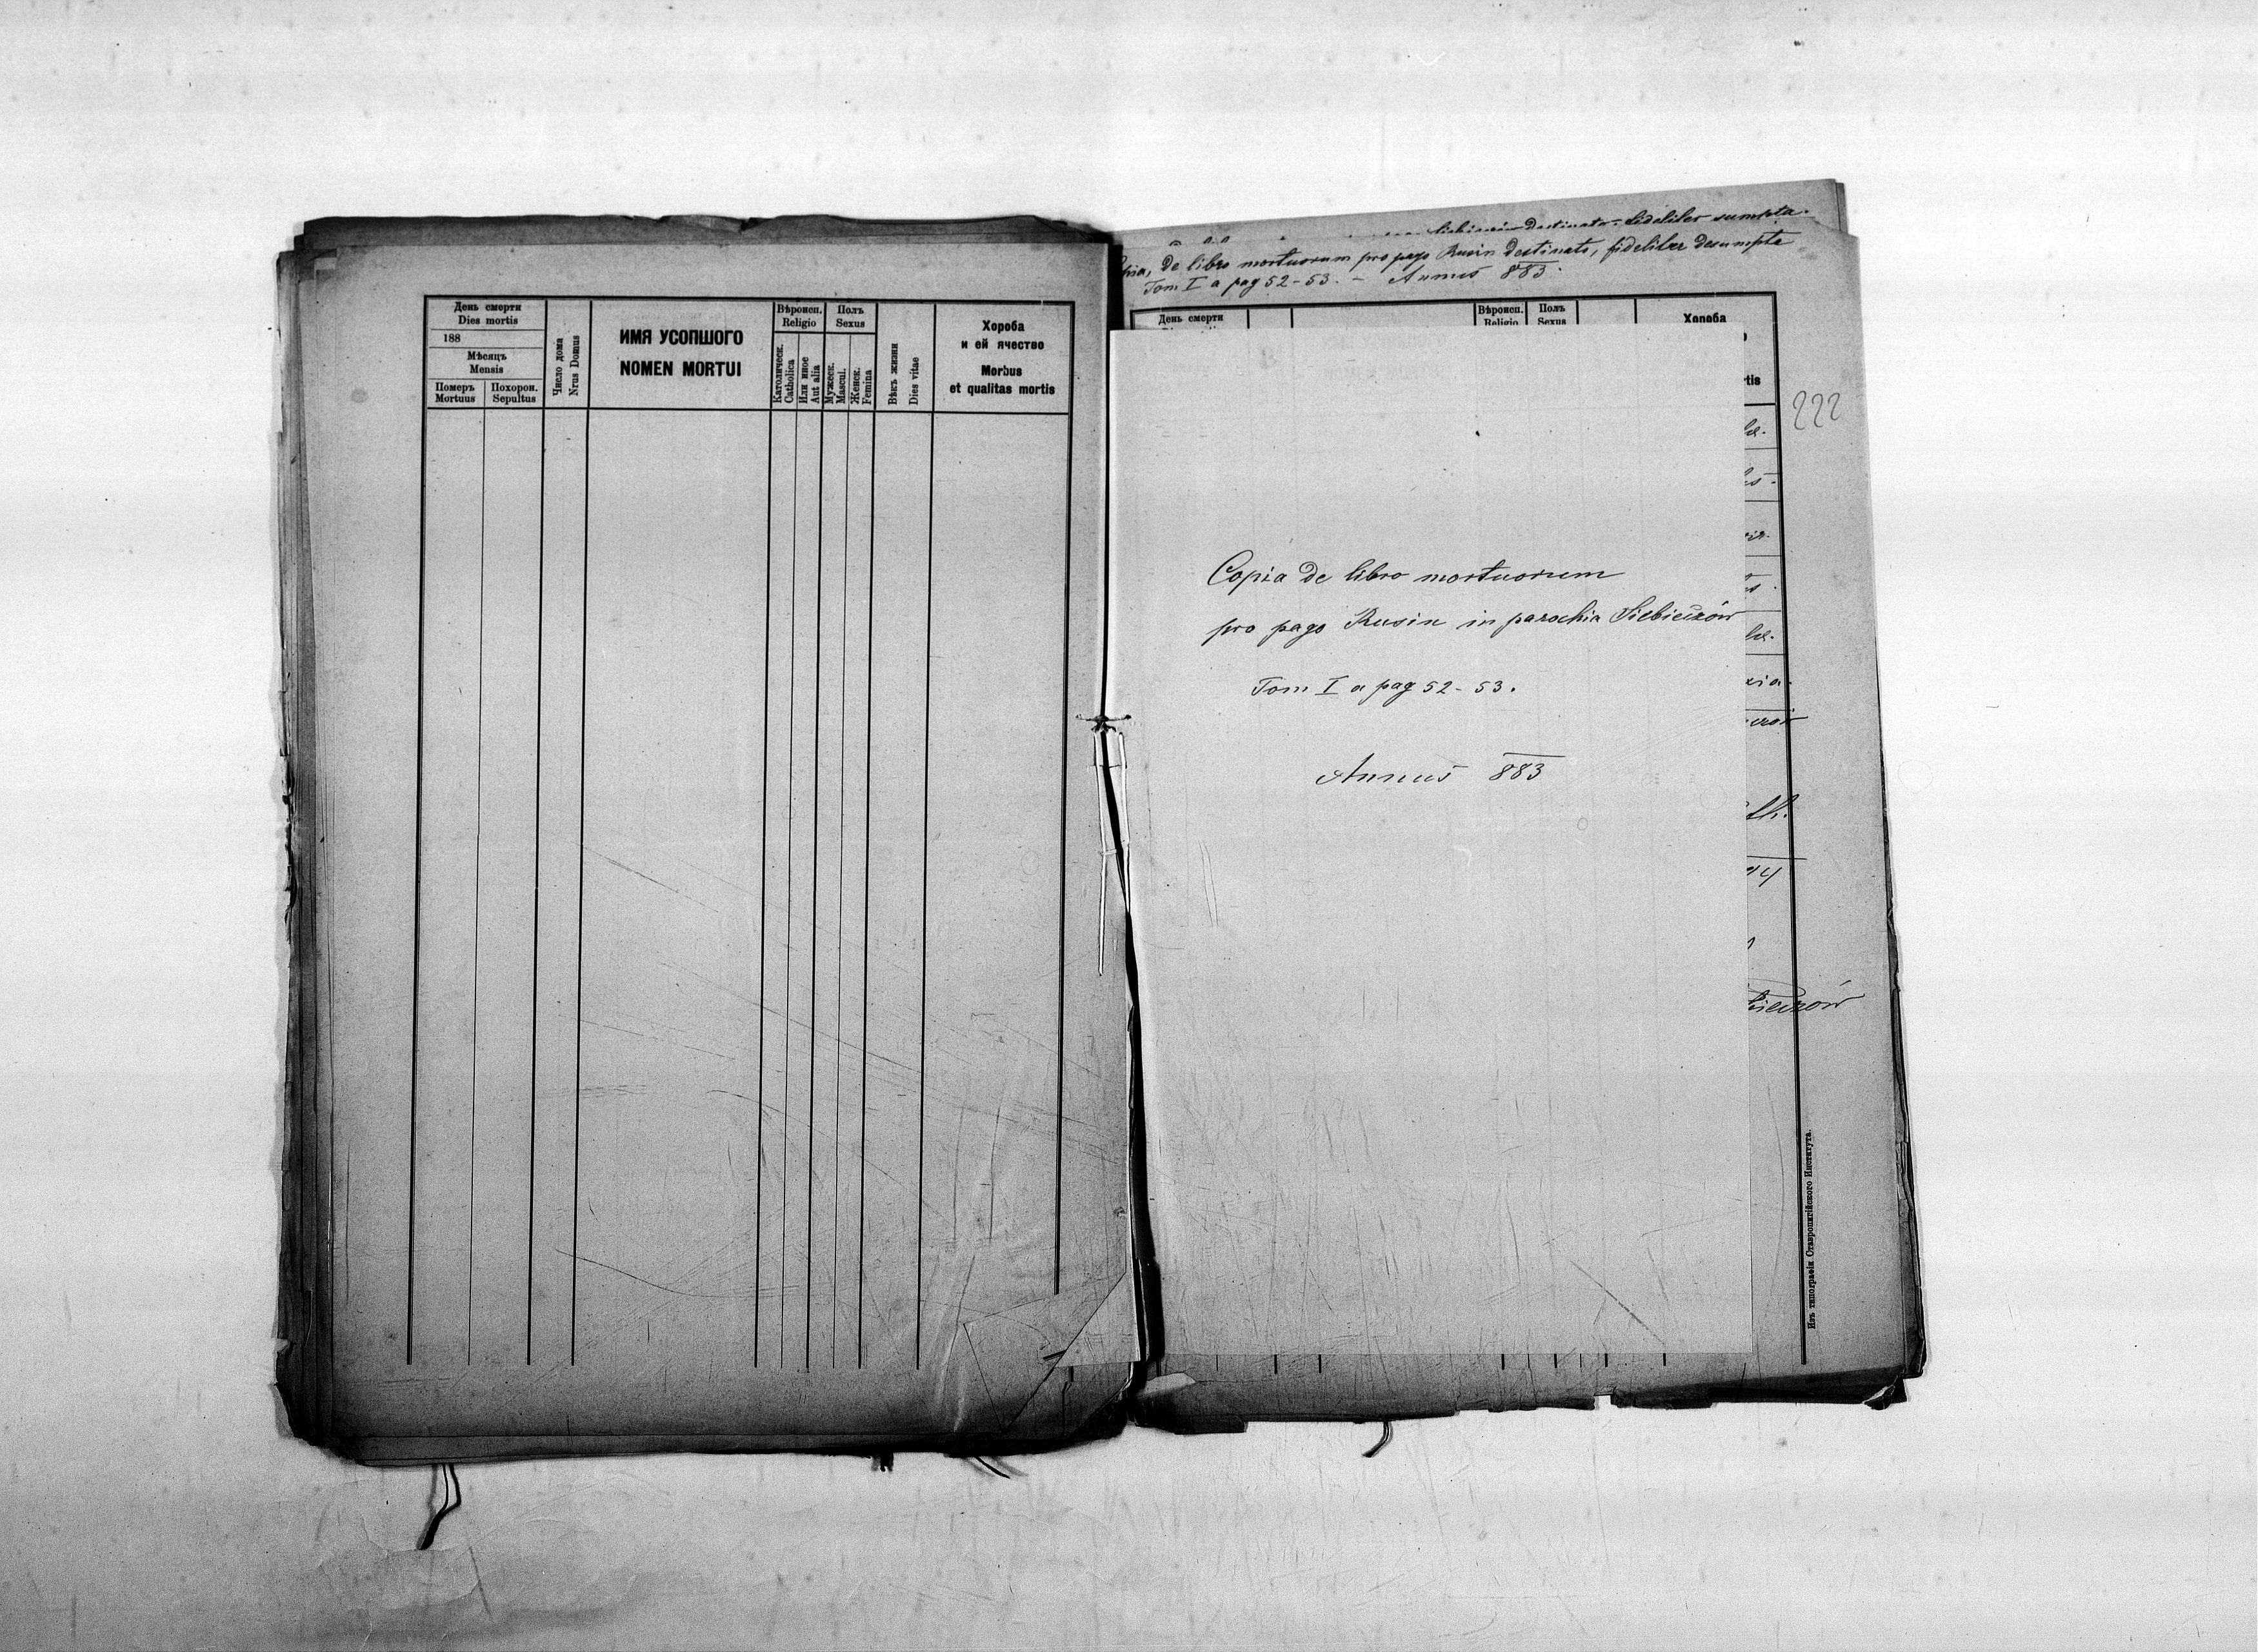 День смерти
Dies mortis
188
Мѣсяцъ
Mensis
Померъ
Mortuus
Похорон.
Sepultus
Число дома
Nrus Domus
ИМЯ УСОПШОГО
NOMEN MORTUI
Вѣроисп.
Religio
Католическ.
Catholica
Или иное
Aut alia
Полъ
Sexus
Мужеск.
Mascul.
Женск.
Femina
Вѣкъ жизни
Dies vitae
Хороба
и ей ячество
Morbus
et qualitas mortis
destinato fideliter sumpta.
de libro mortuorum pro pago Rusin destinato, fideliter desumpta
Tom I a pag 52-53. - Annus 883.
День смерти
Вѣроисп.
Religio
Полъ
Sexus
Хороба
tis
222
Copia de libro mortuorum
pro pago Rusin in parochia Siebieczów
Tom I a pag 52-53.
Annus 883
Изъ типографіи Ставропигійского Института.